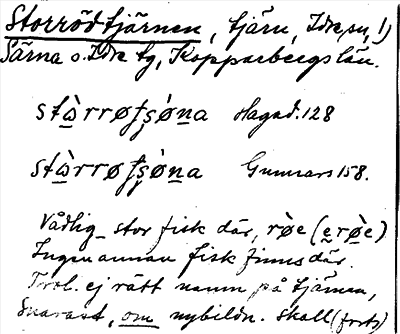 Storrödtjärnen, tjärn, Idre, sn, 1)
Särna o. Idre tg, Kopparbergs län.
stɷ̀rrøʃʂo̊na Hagad. 128
stɷ̀rrøʃʂo̊na Gunnars 158.
Vådlig stor fisk där, røe (e røe)
Ingen annan fisk finns där.
Trol. ej rätt namn på tjärnen,
Snarast, om nybildn. skall (forts)